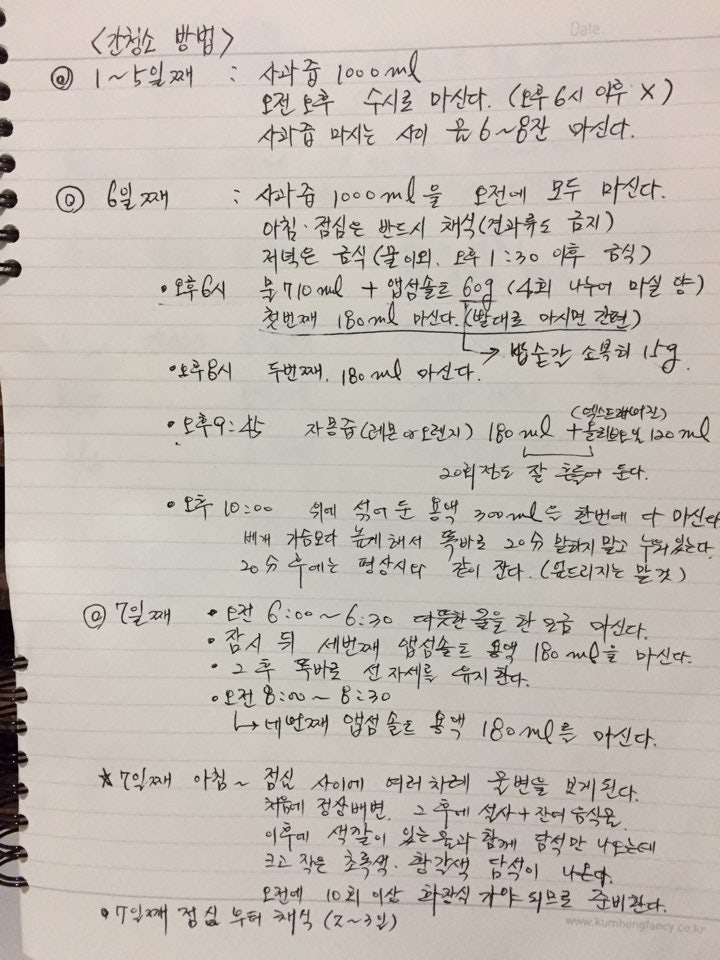 Date.
<간청소 방법>
@ 1~5일째 : 사과즙 1000ml
오전 오후 수시로 마신다. (오후 6시 이후 X)
사과즙 마시는 사이 물 6~8잔 마신다.
@ 6일째 : 사과즙 1000ml을 오전에 모두 마신다.
아침·점심은 반드시 채식(견과류도 금지)
저녁은 금식(물이외. 오후 1:30 이후 금식)
• 오후 6시 물 710ml + 앱섬솔트 60g (4회 나누어 마실 양)
첫번째 180ml 마신다. (빨대로 마시면 간편)
→ 밥숟갈 소복히 15g.
• 오후 8시 두번째. 180ml 마신다.
(엑스트라버진)
• 오후 9:45 자몽즙(레몬 or 오렌지) 180ml + 올리브오일 120ml
20회정도 잘 흔들어 둔다.
• 오후 10:00 위에 섞어 둔 용액 300ml을 한번에 다 마신다
베개 가슴보다 높게 해서 똑바로 20分 말하지 말고 누워있는다.
20分 후에는 평상시와 같이 잔다. (엎드리지는 말 것)
@ 7일째 • 오전 6:00~6:30 따뜻한 물을 한 모금 마신다.
• 잠시 뒤 세번째 앱섬솔트 용액 180ml을 마신다.
• 그 후 똑바로 선 자세를 유지한다.
• 오전 8:00~8:30
→ 네번째 앱섬솔트 용액 180ml를 마신다.
★ 7일째 아침~점심 사이에 여러차례 물변을 보게된다.
처음에 정상배변, 그 후에 설사+잔여음식물
이후에 색깔이 있는 물과 함께 담석만 나오는데
크고 작은 초록색·황갈색 담석이 나온다.
오전에 10회 이상 화장실 가야 되므로 준비한다.
• 7일째 점심 부터 채식 (2~3일)
www.kumhongfancy.co.kr